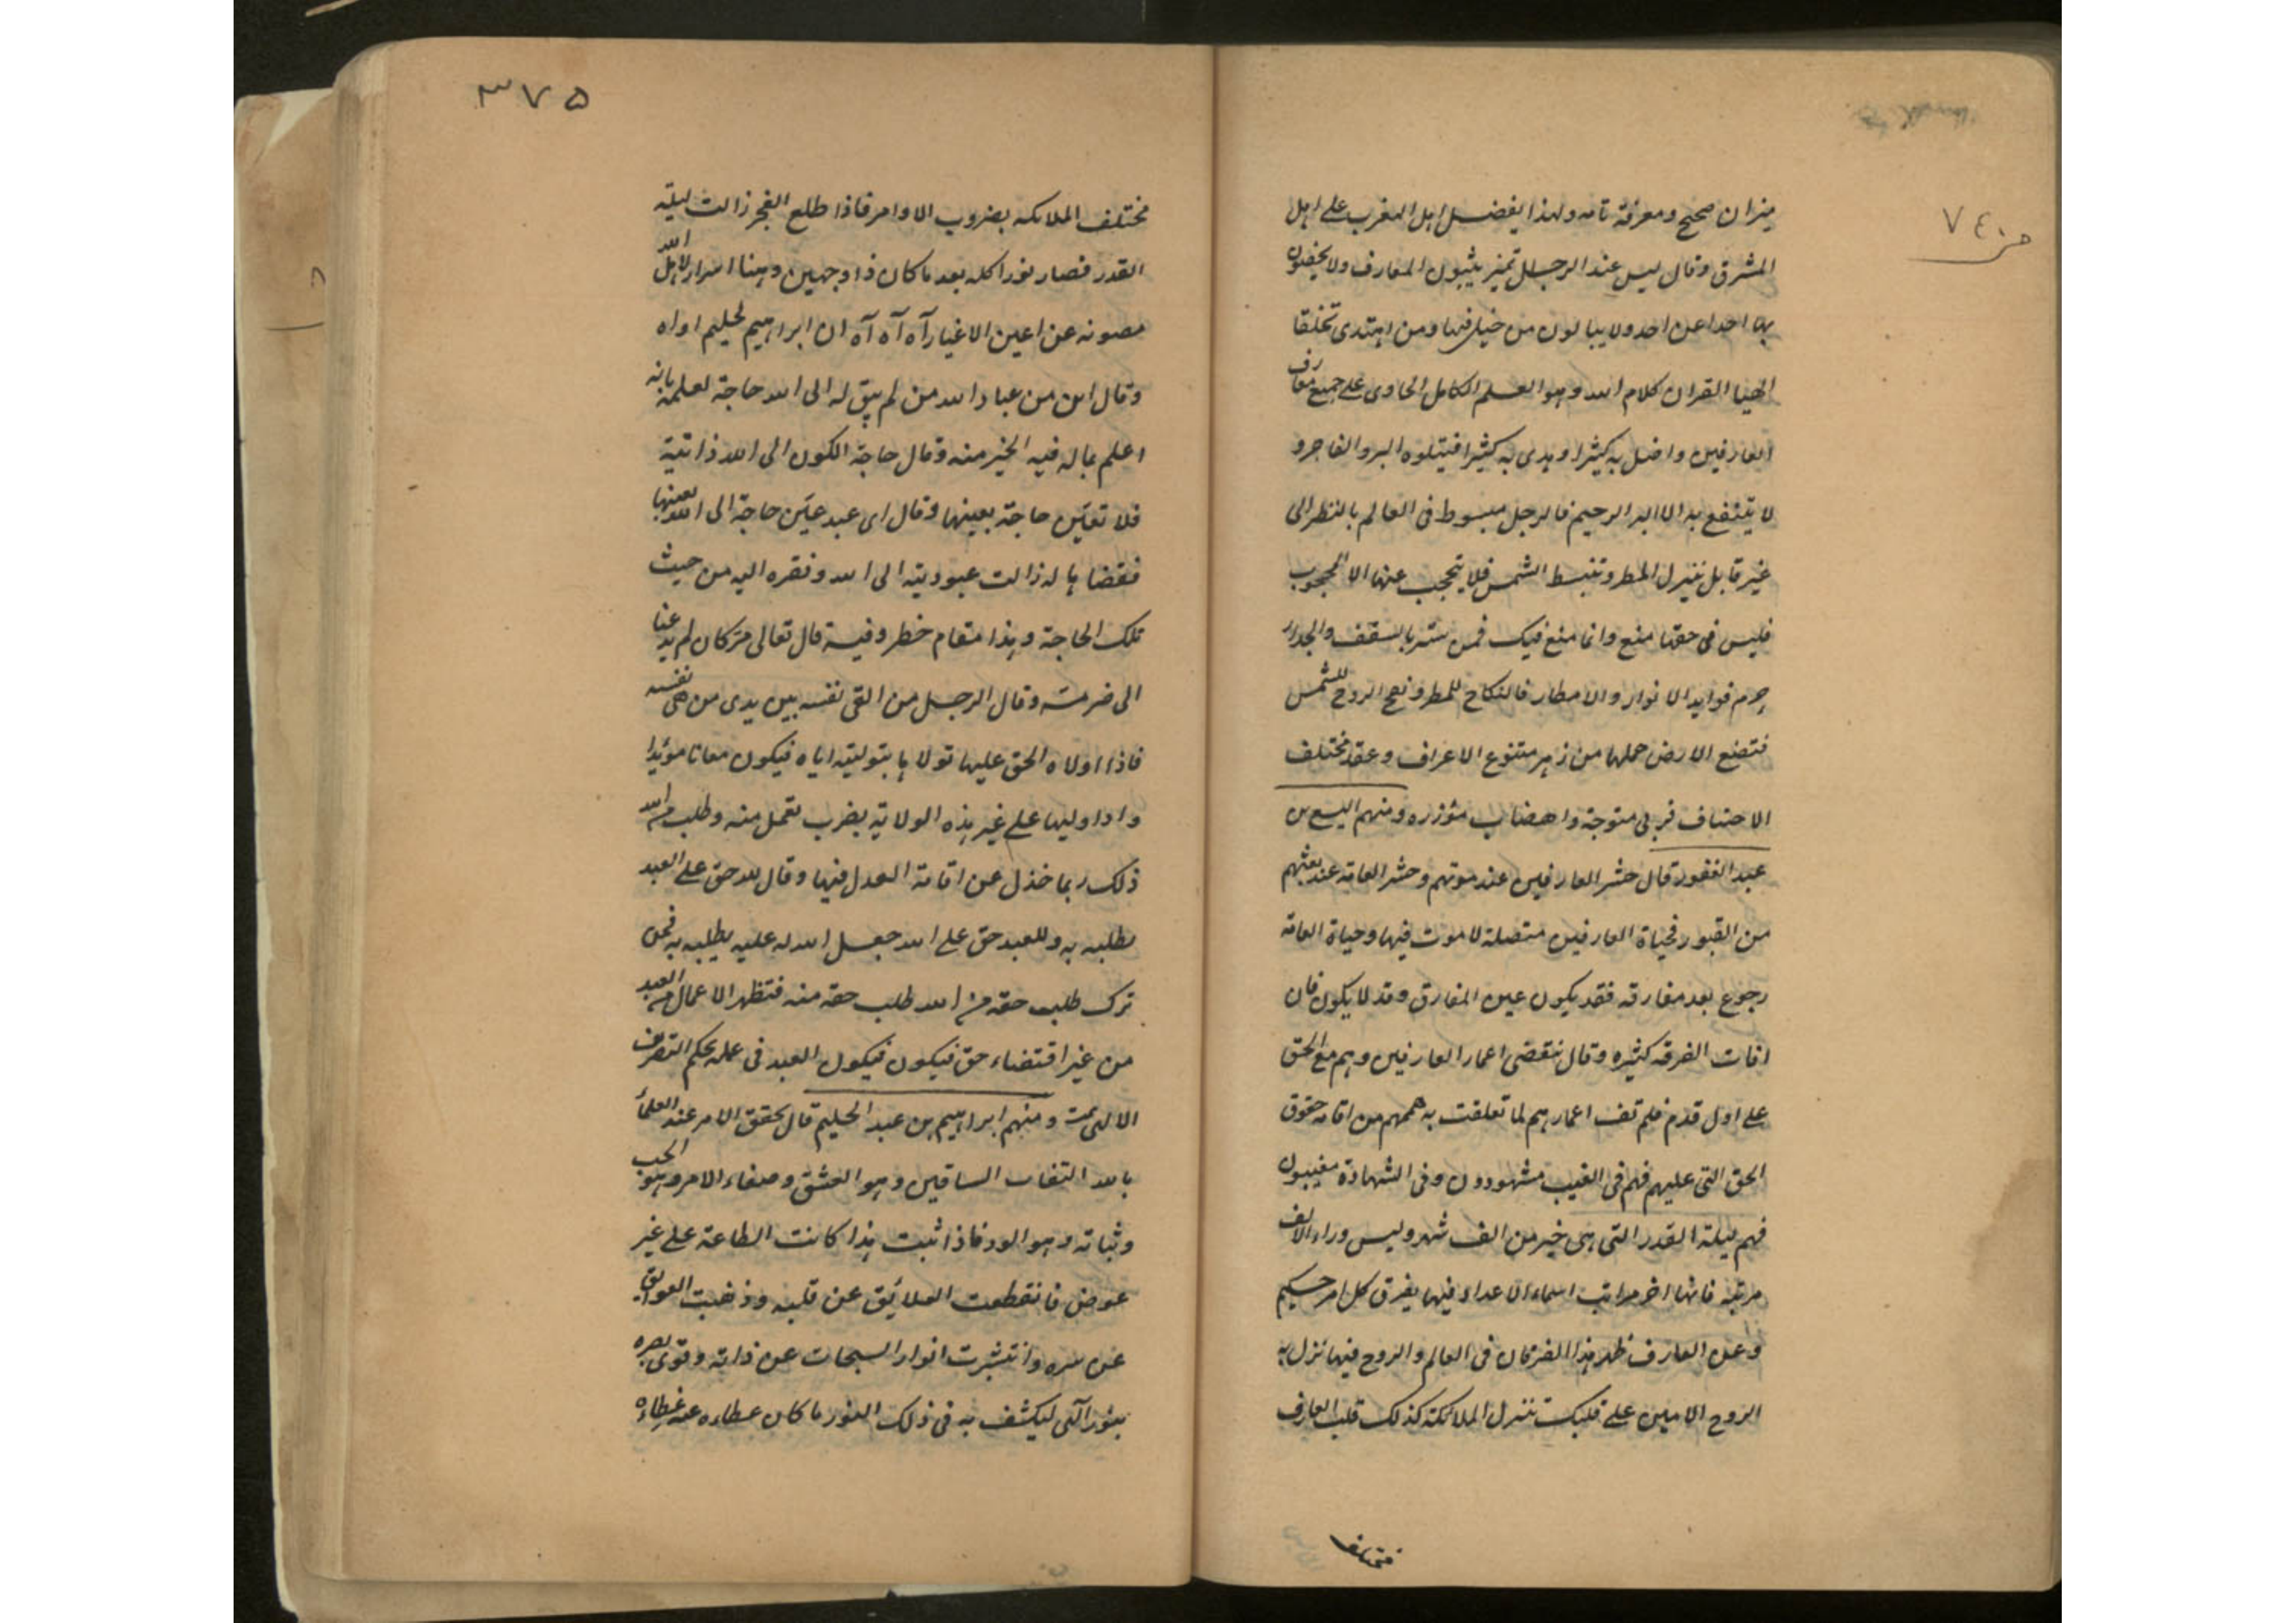 ميزان صحيح ومعرفة تامه ولهذا يفضل اهل المغرب على اهل
المشرق وقال ليس عند الرجل تميز يثبون المعارف ولا يخصون
بها احدا عن احد ولا يبالون من فيها ومن اهتدى تخلقا
الهيا القران كلام الله وهو العلم الكامل الحاوى على جميع معارف
العارفين واضل به كثيرا وهدى به كثيرا فيتلوه البر والفاجر و
لا ينتفع به الا البر الرحيم فالرجل مبسوط فى العالم بالنظر الى
غير قابل نيزل المطر وتنبسط الشمس فلا يتحجب عنها الا المحجوب
فليس فى حقها منع وانما منع فيك فمن ستر بالسقف والجدار
حرم فوايد الانوار والامطار فالنكاح للمطر ونفح الروح للشمس
فتضع الارض حملها من زهر متنوع الاعراف وعقد مختلف
الاصناف فربى متوجة واهضاب مؤزره ومنهم اليسع بن
عبد الغفور قال حشر العارفين عند موتهم وحشر العامة عند بعثهم
من القبور فحياة العارفين متصلة لا موت فيها وحياة العامة
رجوع بعد مفارقه فقد يكون عين المفارق وقد لا يكون فان
افات الفرقه كثيره وقال تنقضى اعمار العارفين وهم مع الحق
على اول قدم فلم تف اعمارهم لما تعلقت به هممهم من اقامه حقوق
الحق التى عليهم فهم فى الغيب مشهودون وفى الشهادة مغيبون
فهم ليلة القدر التى هى خير من الف شهر وليس وراء الالف
مرتبه فانها اخر مراتب اسماء الاعداد فيها يفرق كل امر حكيم
وعن العارف ظهر هذا الفرقان فى العالم والروح فيها نزل به
الروح الامين على قلبك تنزل الملائكة كذلك قلب العارف
فمختلف
٧٤
٣٧٥
مختلف الملائكه بضروب الاوامر فاذا طلع الفجر زالت ليلة
القدر فصار نورا كله بعد ما كان ذا وجهين وهنا اسرار لاهل الله
مصونه عن اعين الاغيار آه آه آه ان ابراهيم لحليم اواه
وقال من عباد الله من لم يبق له الى الله حاجة لعلمه بانه
اعلم بماله فيه الخير منه وقال حاجة الكون الى الله ذاتية
فلا تعيّن حاجة بعينها وقال اى عبد عيّن حاجة الى الله بعينها
فقضاها له زالت عبوديته الى الله وفقره اليه من حيث
تلك الحاجة وهذا مقام خطر وفيه قال تعالى مر كان لم يدعنا
الى ضر مسه وقال الرجل من القى نفسه بين يدى من هى نفسه
فاذا اولاه الحق عليها تولاها بتوليته اياه فيكون معانا مؤيدا
واذا وليها على غير هذه الولاية بضرب تعمل منه وطلب من الله
ذلك ربما خذل عن اقامة العدل فيها وقال لله حق على العبد
يطلبه به وللعبد حق على الله جعل الله له عليه يطلبه به فمن
ترك طلب حقه من الله طلب حقه منه فتظهر الاعمال من العبد
من غير اقتضاء حق فيكون فيكون العبد فى عمله بحكم التصرف
الالهى ومنهم ابراهيم بن عبد الحليم قال تحقق الامر عند العلماء
بالله التفات الساقين وهو العشق وصفاء الامر وهو الحب
وثباته وهو الود فاذا ثبت هذا كانت الطاعة على غير
عوض فانقطعت العلائق عن قلبه وذهبت العوائق
عن سره وانتشرت انوار السبحات عن ذاته وقوى بصره
بنور الهى ليكشف به فى ذلك النور ما كان غطاءه عنه غطاءه